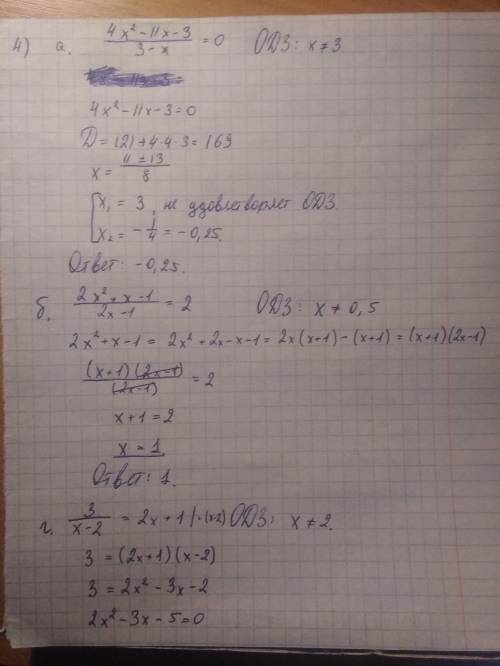 4) а. (4x² - 11x - 3)/(3 - x) = 0 ОДЗ: x ≠ 3
4x² - 11x - 3 = 0
D = 121 + 4·4·3 = 169
x = (11 ± 13)/8
[x₁ = 3, не удовлетворяет ОДЗ.
x₂ = -1/4 = -0,25.
Ответ: -0,25.
б. (2x² + x - 1)/(2x - 1) = 2 ОДЗ: x ≠ 0,5
2x² + x - 1 = 2x² + 2x - x - 1 = 2x(x+1) - (x+1) = (x+1)(2x-1)
(x+1)(2x-1)/(2x-1) = 2
x + 1 = 2
x = 1
Ответ: 1.
г. 3/(x-2) = 2x + 1 |·(x-2) ОДЗ: x ≠ 2.
3 = (2x+1)(x-2)
3 = 2x² - 3x - 2
2x² - 3x - 5 = 0